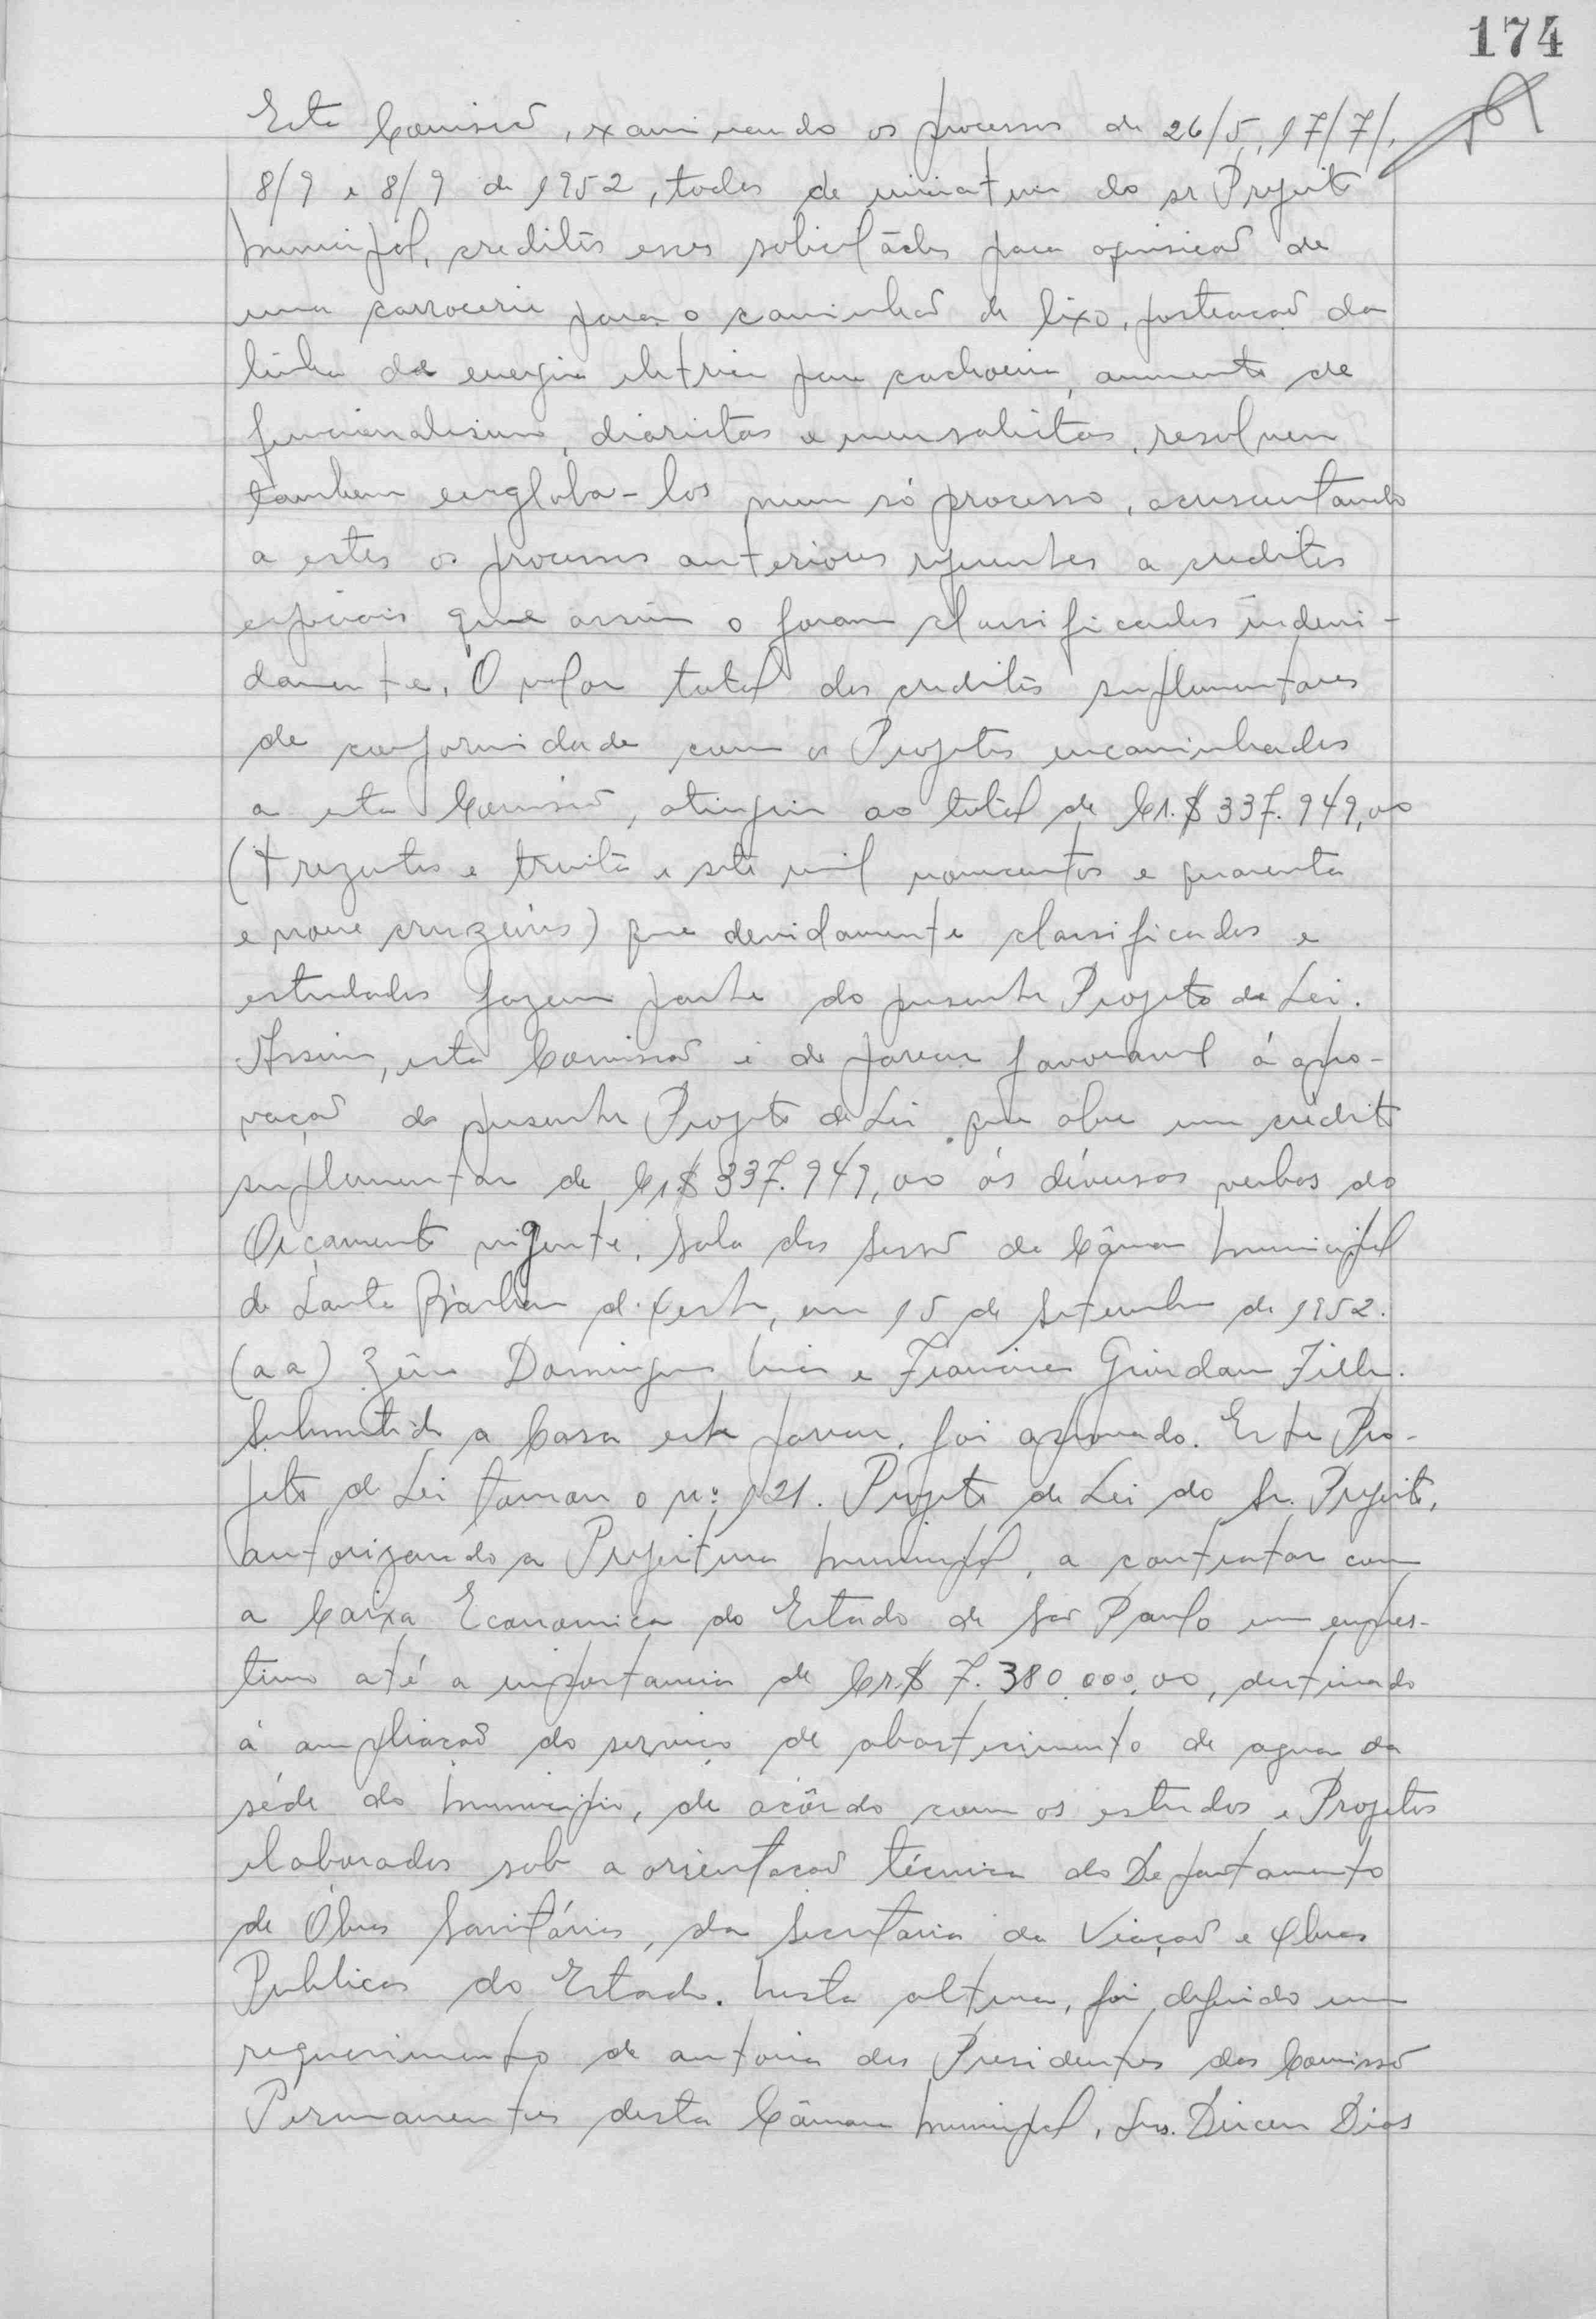 174
Esta Comissão, examinando os processos de 26/5, 17/7/,
8/9 e 8/9 de 1952, todos de iniciativa do sr Prefeito
Municipal, creditos esses solicitados para aquisicão de
uma carroceria para o caminhão de lixo, posteacão da
linha da energia eletrica para cachoeira, aumento de
funcionalismo, diaristas e mensalistas, resolveu
tambem engloba-los num só processo, acrescentando
a estes os processos anteriores referentes a creditos
especiais que assim o foram classificados indevi-
damente. O valor total dos creditos suplementares
de conformidade com os Projetos encaminhados
a esta Comissão, atingiu ao total de Cr.$ 337.949,00
(trezentos e trinta e sete mil novecentos e quarenta
e nove cruzeiros) que devidamente classificados e
estudados fazem parte do presente Projeto de Lei.
Assim, esta Comissão é de parecer favoravel á apro-
vação do presente Projeto de Lei que abre um crédito
suplementar de Cr$ 337.949,00 ás diversas verbas do
Orçamento vigente. Sala das Sessõ da Câmara Municipal
de Santa Bárbara d'Oeste, em 15 de Setembro de 1952.
(aa) Domingues e Francisco Filho.
Submetido a Casa este parecer, foi aprovado. Este Pro-
jeto de Lei tomou o nº 121. Projeto de Lei do Sr. Prefeito,
autorizando a Prefeitura Municipal, a contratar com
a Caixa Economica do Estado de São Paulo um empres-
timo até a importancia de Cr$ 7.380.000,00, destinado
á ampliacão do serviço de abastecimento de agua da
séde do Municipio, de acôrdo com os estudos e Projetos
elaborados sob a orientacão técnica do Departamento
de Óbras Sanitárias, da Secretaria da Viação e Obras
Publicas do Estado. Nesta altura, foi deferido um
requerimento de autoria dos Presidentes das Comissõ
Permanentes desta Câmara Municipal, Srs. Dirceu Dias